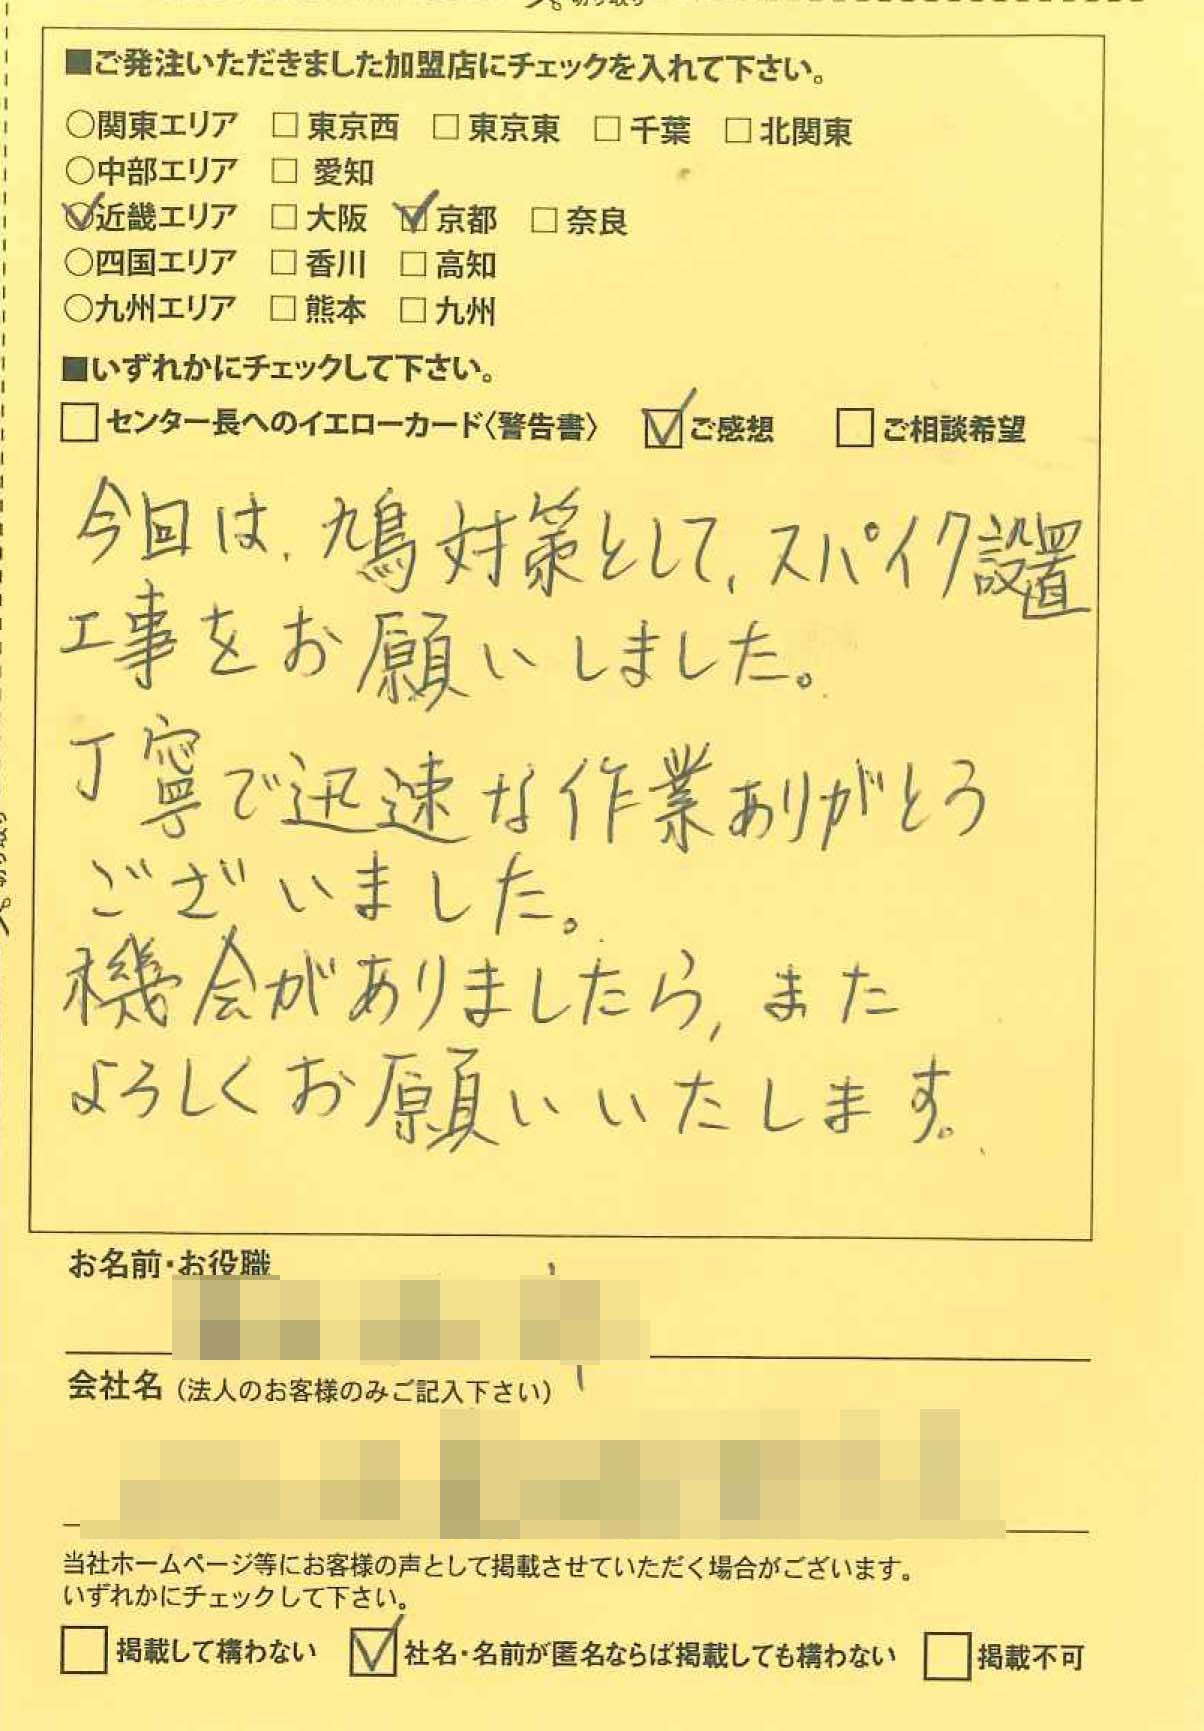 切り取り
■ご発注いただきました加盟店にチェックを入れて下さい。
○関東エリア □東京西 □東京東 □千葉 □北関東
○中部エリア □愛知
○近畿エリア □大阪 ☑京都 □奈良
○四国エリア □香川 □高知
○九州エリア □熊本 □九州
■いずれかにチェックして下さい。
□センター長へのイエローカード〈警告書〉 ☑ご感想 □ご相談希望
今回は、鳩対策として、スパイク設置
工事をお願いしました。
丁寧で迅速な作業ありがとう
ございました。
機会がありましたら、また
よろしくお願いいたします。
お名前・お役職
会社名(法人のお客様のみご記入下さい)
当社ホームページ等にお客様の声として掲載させていただく場合がございます。
いずれかにチェックして下さい。
□掲載して構わない ☑社名・名前が匿名ならば掲載しても構わない □掲載不可